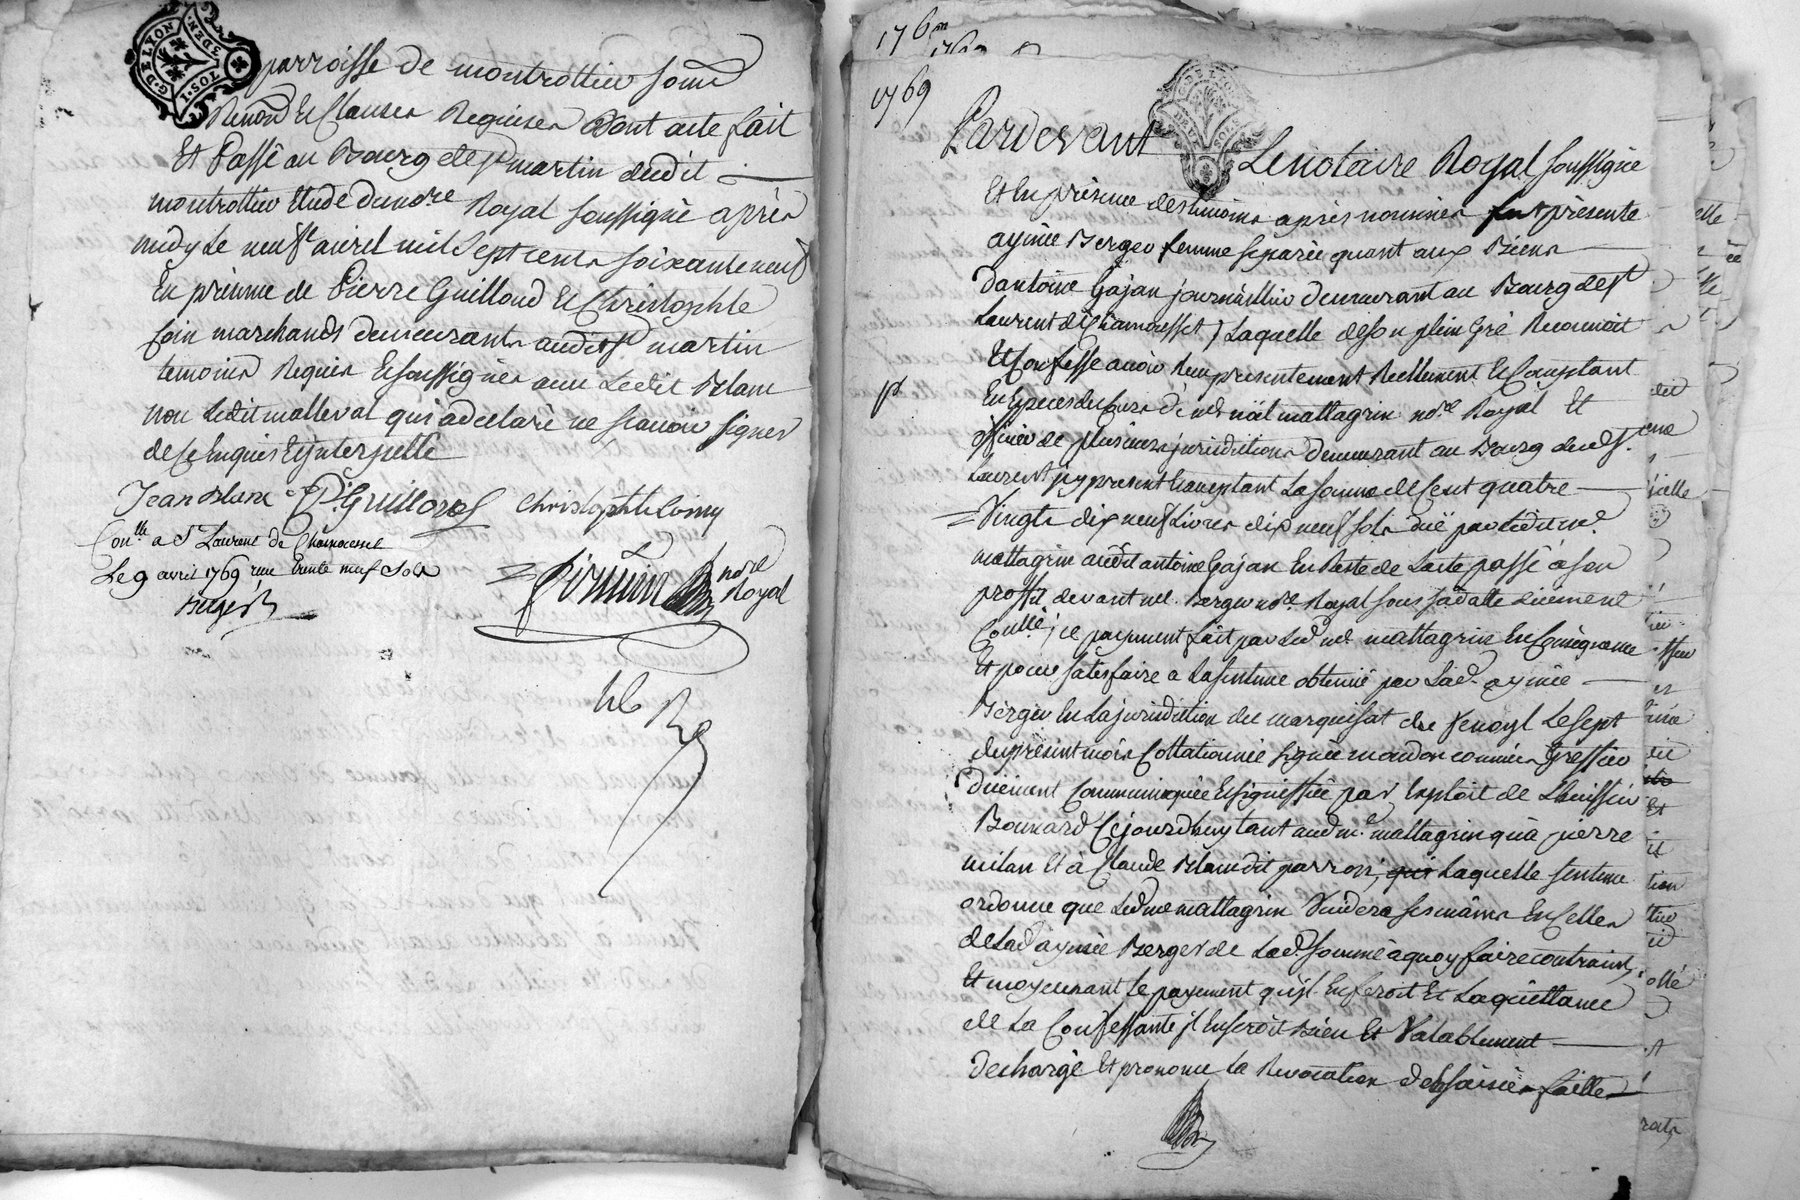 G. DE LYON
3 DEN.
1. SOL
parroisse de montrottier soums
Renon. Et Clauses Requises Dont acte fait
Et Passé au Bourg de st martin dudit
montrottier Etude dud nore Royal soussigné après
midy Le neuf avril mil Sept cents soixante neuf
En présence de Pierre Guilloud Et Christophle
Coin marchands demeurants audit st martin
temoins Requis Et soussignés avec Ledit Blanc
non Ledit malleval qui a declaré ne scavoir signer
de Ce Enquis Et interpellé
Jean Blanc P. Guilloud Christophle Coin
Conllé a St Laurent de Chamousset
Le 9 avril 1769 reçu trente neuf Sols
Berger
nore
Royal
1769
1769
G. DE LYON
DEUX SOLS
Pardevant Le notaire Royal soussigné
Et En présence des temoins après nommés fut présente
aymée Berger femme separée quant aux Biens
D'antoine Gajan journallier demeurant au Bourg de st
Laurent de Chamousset, Laquelle de son plein Gré Reconnoit
Et Confesse avoir Reçu presentement Reellement Et Comptant
En Especes du Cours de me noël mattagrin nore Royal Et
officier de plusieurs jurisdictions demeurant au Bourg dud st.
Laurent jcy present Et aceptant La somme de Cent quatre
Vingts dix neuf Livres dix neuf sols düe par Led me
mattagrin audit antoine Gajan En Reste de L'acte passé à son
proffit devant me. Berger nore. Royal sous sa datte düement
Conllé; ce payement fait par Led me mattagrin En Conséquence
Et pour satisfaire a La sentence obtenüe par Lad. aymée
Berger En La jurisdiction du marquisat de Fenoyl Le sept
du présent mois Collationnée signée mandon commis Greffier
Düement Communiquée Et signiffiée par Exploit de L'huissier
Bonnard Cejourdhuy tant aud me. mattagrin qu'à pierre
milan Et à Claude Blanc dit parron, Laquelle sentence
ordonne que Led me mattagrin Vuidera ses mains En Celles
de Lad aymée Berger de Lad. somme à quoy faire contraint,
Et moyennant Le payement qu'jl En feroit Et La quittance
de La Confessante jl En seroit Bien Et Valablement
Dechargé Et prononce La Revocation des saisies faittes